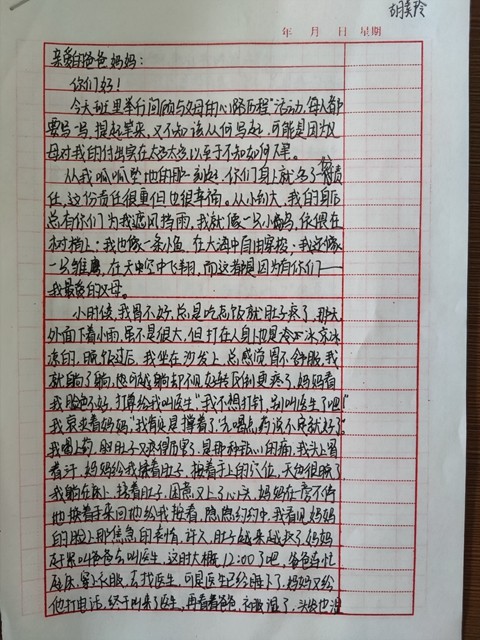 胡美玲
年 月 日 星期
亲爱的爸爸妈妈：
你们好！
今天班里举行"回顾与父母的心路历程"活动，每人都
要写一写，提起笔来，又不知该从何写起，可能是因为父
母对我的付出实在太多太多以至于不知如何下笔。
从我呱呱坠地的那一刻起，你们身上就多了一份责
任，这份责任很重但也很幸福。从小到大，我的身后
总有你们为我遮风挡雨，我就像一只小鸟，依偎在
树梢上；我也像一条小鱼，在大海中自由穿梭；我还像
一只雏鹰，在天空中飞翔，而这都是因为有你们——
我最爱的父母。
小时候，我胃不好，总是吃完饭就肚子疼了，那天
外面下着小雨，虽不是很大，但打在人身上也是冷冰冰
凉的，晚饭过后，我坐在沙发上，总感觉胃不舒服，我
就躺了躺，但可我躺却不但没好转反倒更疼了，妈妈看
我脸色不好，打算给我叫医生"我不想打针，别叫医生了吧！"
我哀求着妈妈"我肯定是撑着了，先喝点药说不定就好了。"
我喝上药，但肚子又疼得厉害了，是那种钻心的痛，我头上冒
着汗，妈妈给我揉着肚子，按着手上的穴位，天也很晚了，
我躺在床上，揉着肚子，困意又上了心头，妈妈在旁不停
地搓着手来回地给我按着，隐隐约约中，我看见妈妈
的脸上那焦急的表情，许久，肚子越来越疼了，妈妈
赶紧叫爸爸去叫医生，这时大概12:00了吧，爸爸连忙
起床，穿上衣服，去找医生，可是医生已经睡下了，妈妈又给
他打电话，终于叫来了医生，再看看爸爸，衣服湿了，头发也湿